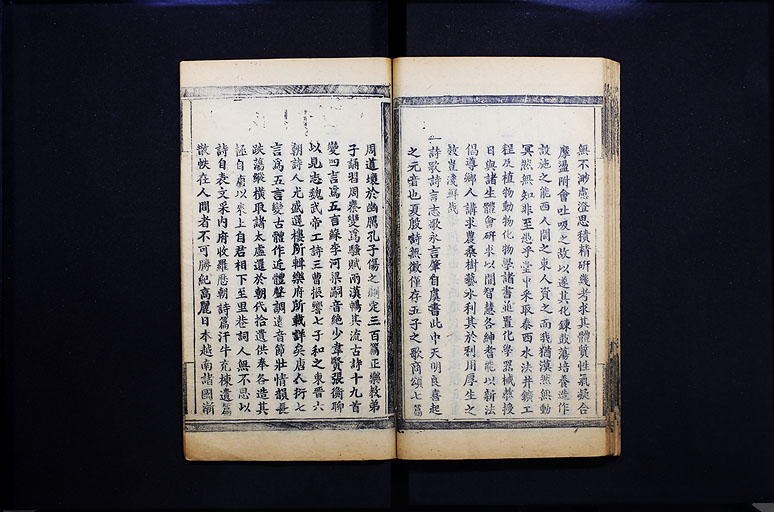 無不渺慮澄思積精研幾考求其體質性氣凝合
摩盪附會吐吸之故以遂其化鍊鼓蕩培養造作
設施之能西人闢之東人資之而我猶漠然無動
冥然無知非至愚乎堂中采取泰西水法并鑛工
程及植物動物化物學諸書並置化學器械教授
日與諸生體會研求以開智慧各紳耆能以新法
倡導鄉人講求農桑樹藝水利其於利用厚生之
效豈淺鮮哉
一詩歌詩言志歌永言肇自虞書此中天明良喜起
之元音也夏殷時無徵僅存五子之歌商頌七篇
周道壞於幽厲孔子傷之刪定三百篇正樂教弟
子誦習周衰變為騷賦兩漢暢其流古詩十九首
變四言為五言蘇李河梁嗣音絶少韋賢張衡聊
以見志魏武帝工詩三曹振響七子和之東晉六
朝詩人尤盛選樓所輯樂府所載詳矣唐人衍七
言為五言變古體作近體聲調遠音節壯情韻長
跌蕩縱橫取諸太虛還於朝代拾遺供奉各造其
極自廟以來上自君相下至里巷詞人無不思以
詩自表文采內府收羅歷朝詩篇汗牛充棟遺篇
散帙在人間者不可勝紀高麗日本越南諸國漸